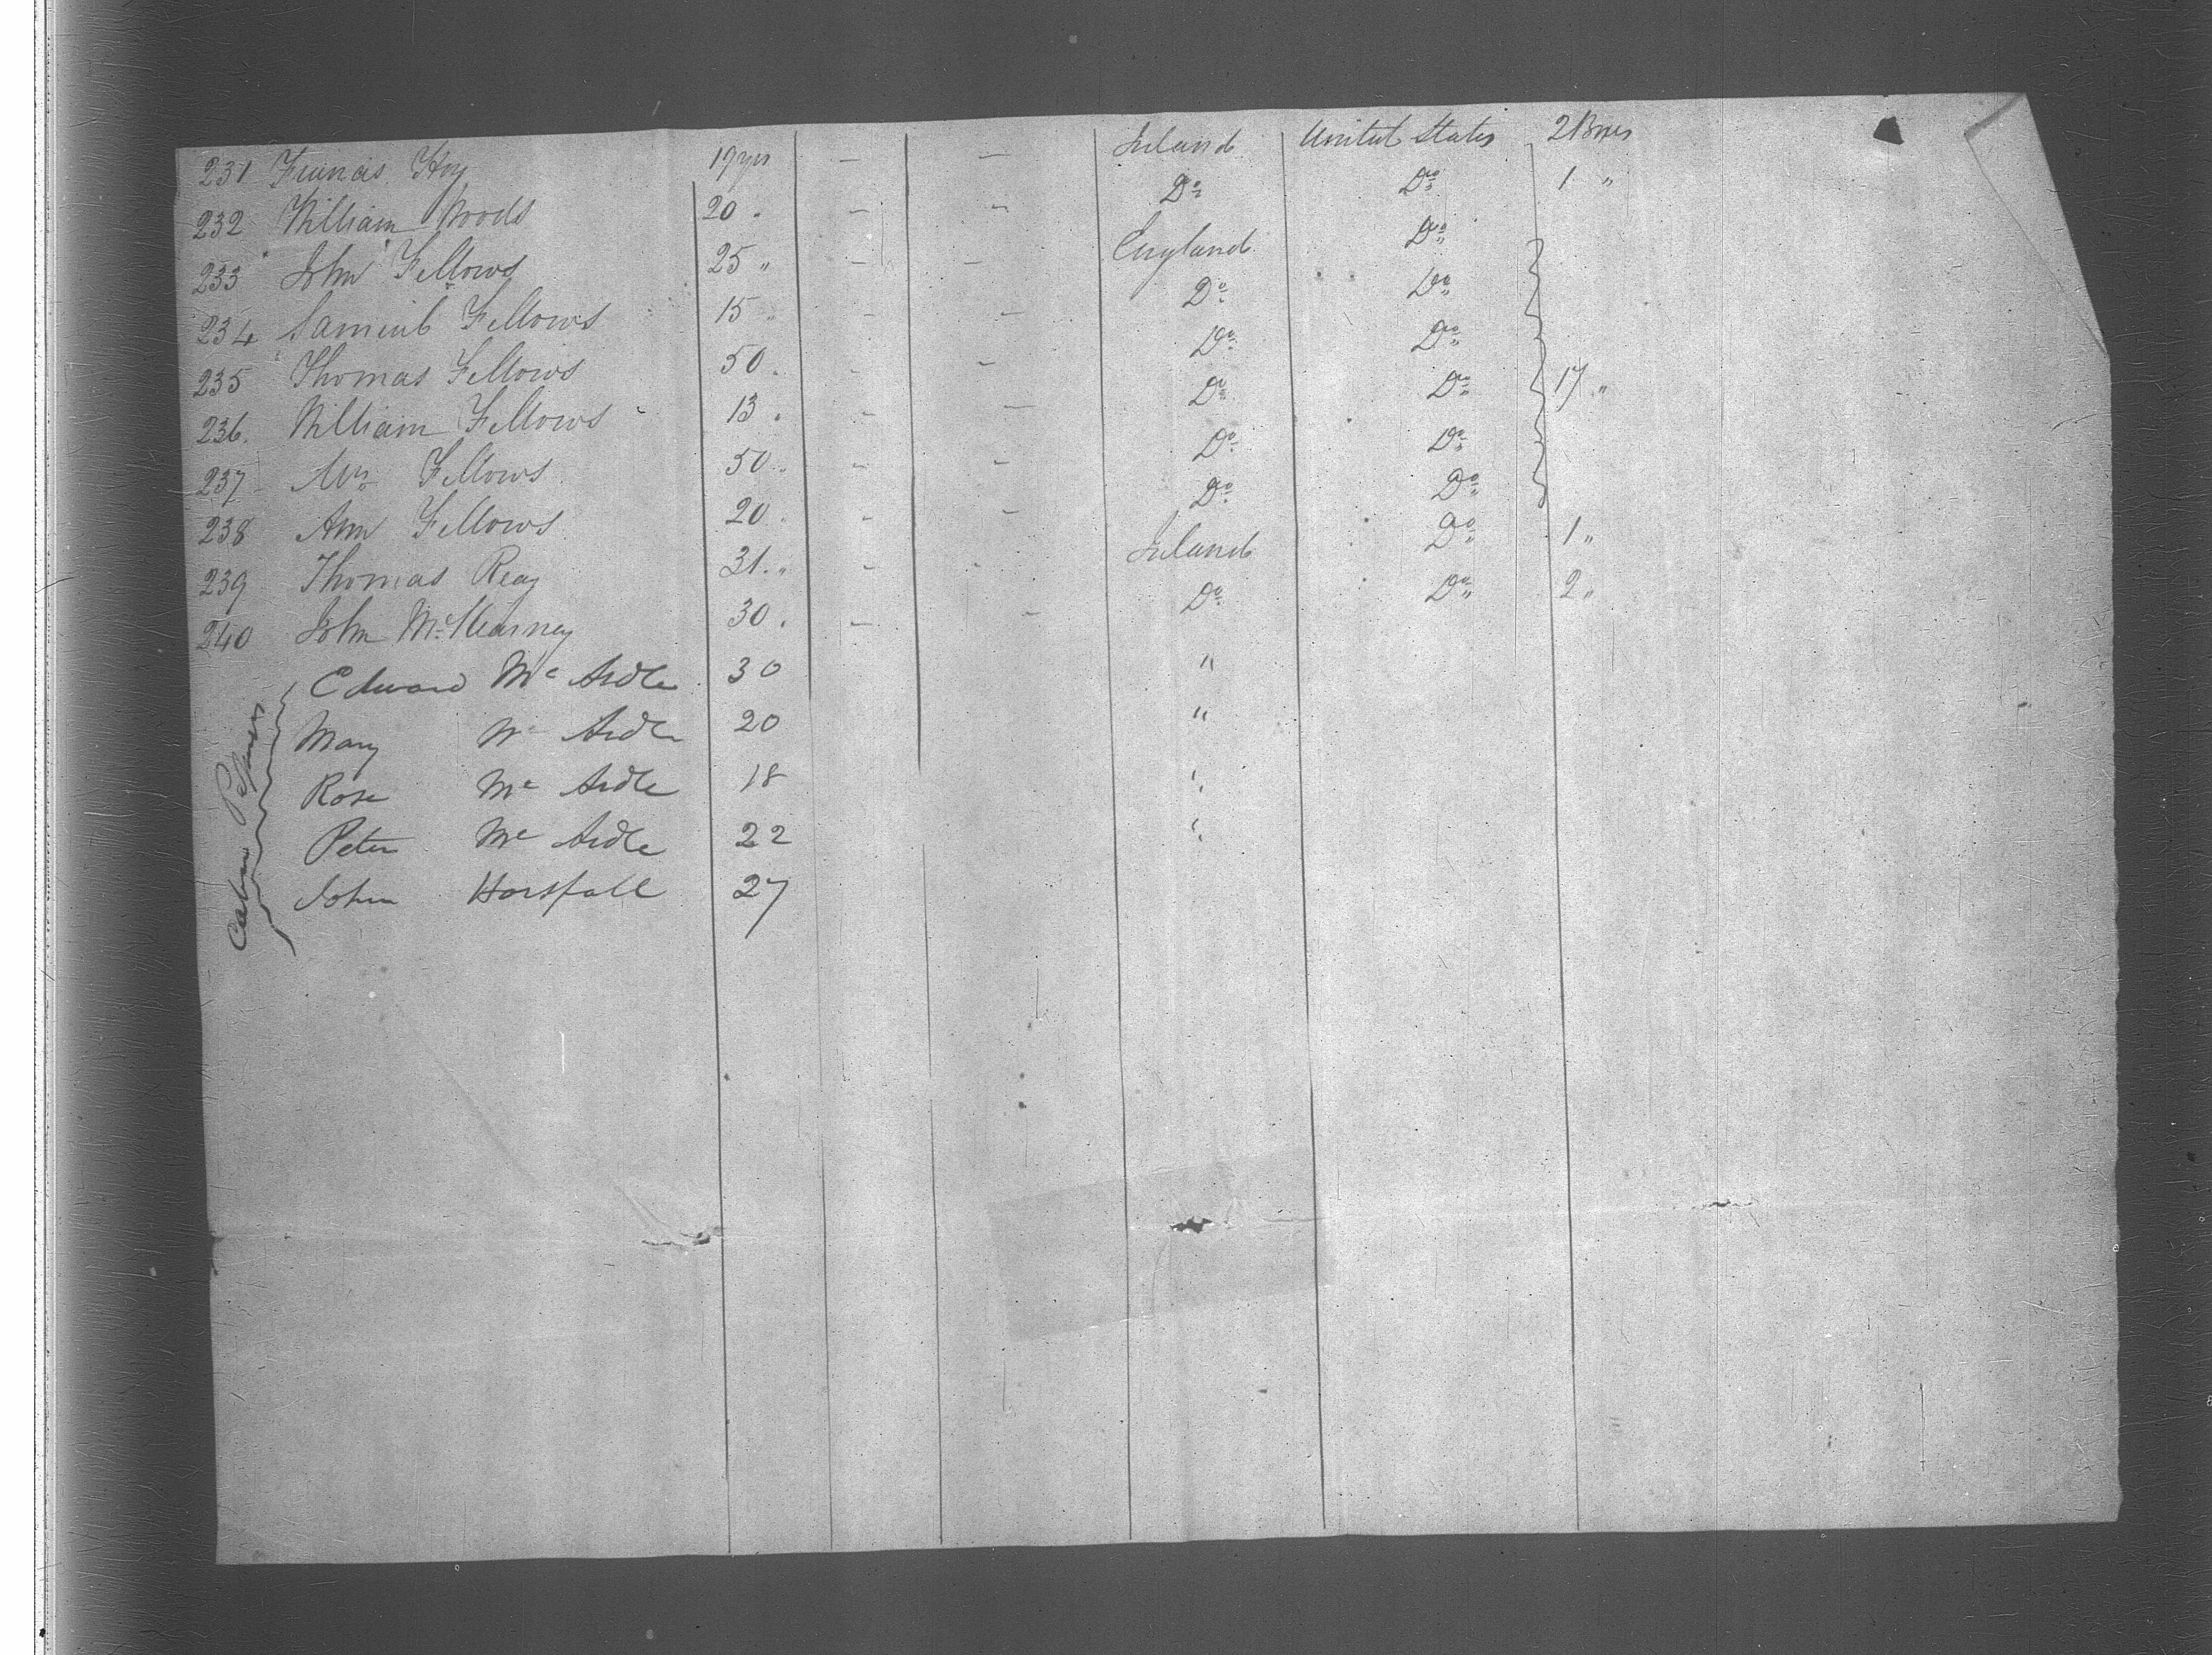 231 Francis Hoy 19 yrs — — Ireland United States 2 Bxes
232 William Woods 20 " — — Do Do 1 "
233 John Fellows 25 " — — England Do
234 Samuel Fellows 15 " - - Do Do
235 Thomas Fellows 50 " - - Do Do
236 William Fellows 13 " - - Do Do 17 "
237 Mrs Fellows 50 " - - Do Do
238 Ann Fellows 20 " - - Do Do
239 Thomas Reay 31 " - - Ireland Do 1 "
240 John 30 " - - Do Do 2 "
Edward Mc Ardle 30 "
Mary Mc Ardle 20 "
Rose Mc Ardle 18 "
Peter Mc Ardle 22 "
John Horsfall 27
Cabin